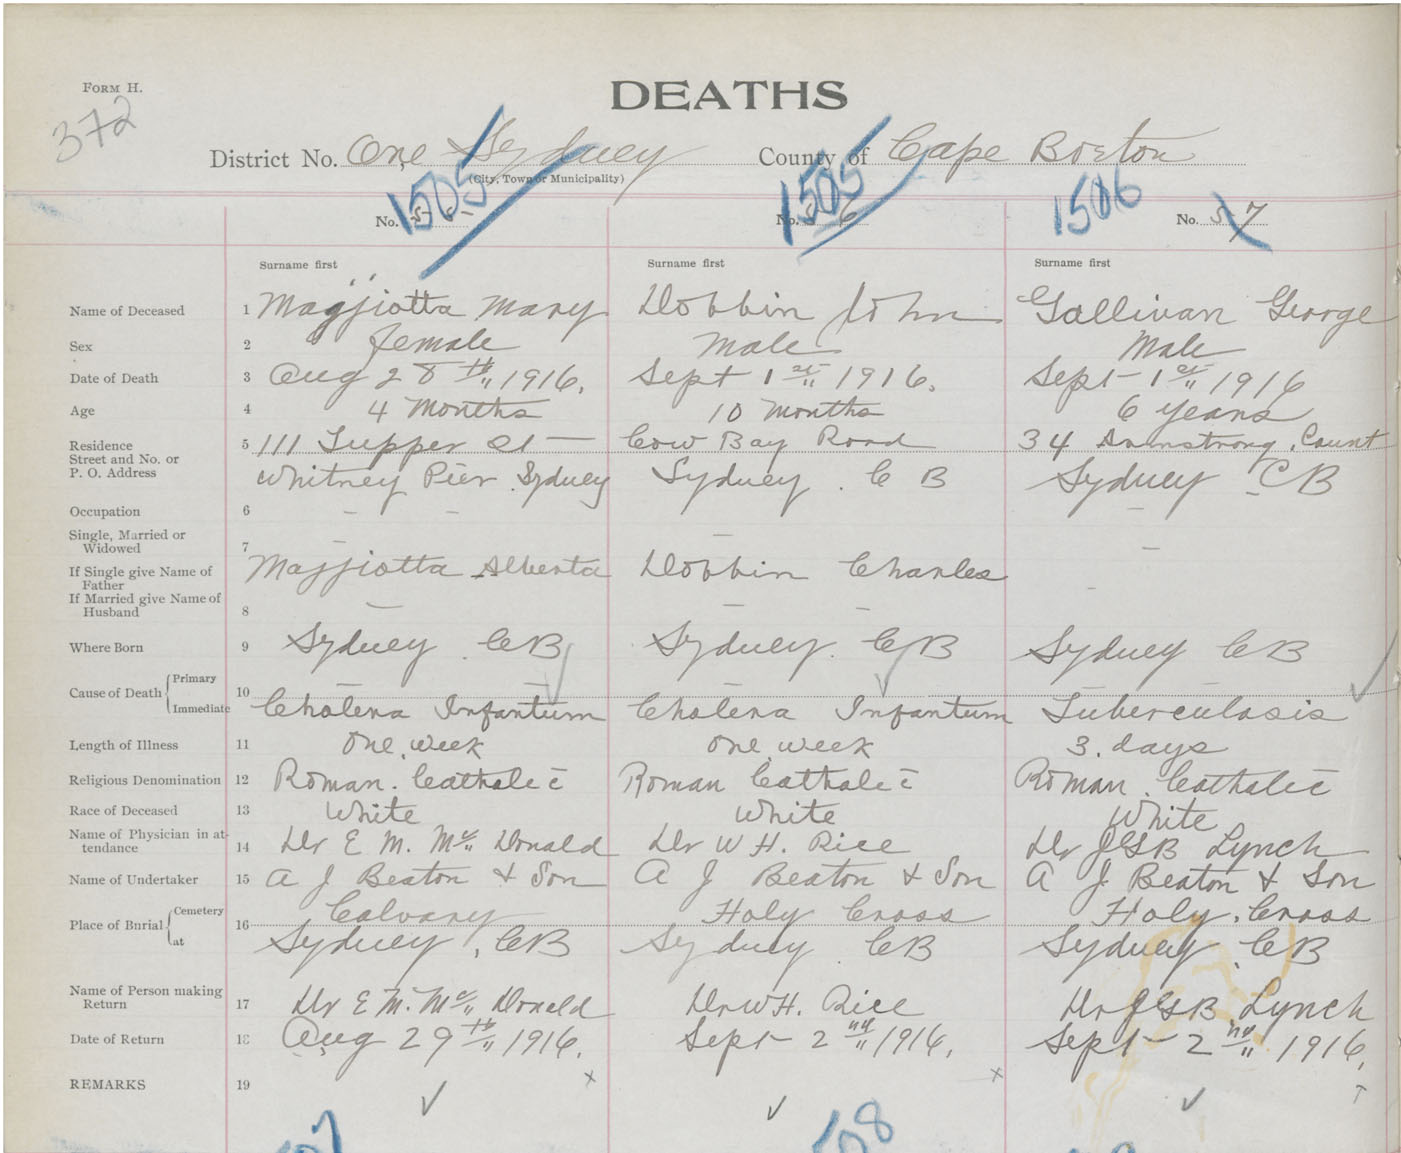 FORM H.
372
DEATHS
District No. One Sydney County of Cape Breton
(City, Town or Municipality)
1505 1505 1506
No. 55 No. 56 No. 57
Surname first Surname first Surname first
Name of Deceased 1 Majjiotta Mary Dobbin John Gallivan George
Sex 2 female Male Male
Date of Death 3 Aug 28th 1916. Sept 1st 1916. Sept 1st 1916
Age 4 4 Months 10 Months 6 years
Residence 5 111 Tupper St Cow Bay Road 34 Armstrong Court
Street and No. or
P. O. Address Whitney Pier Sydney Sydney C B Sydney C B
Occupation 6 - - - -
Single, Married or
Widowed 7 - - -
If Single give Name of
Father Majjiotta Alberta Dobbin Charles -
If Married give Name of
Husband 8 - - -
Where Born 9 Sydney CB Sydney CB Sydney CB
Cause of Death Primary 10 - - -
Immediate Cholera Infantum Cholera Infantum Tuberculosis
Length of Illness 11 One week One week 3 days
Religious Denomination 12 Roman Catholic Roman Catholic Roman Catholic
Race of Deceased 13 White White White
Name of Physician in at-
tendance 14 Dr E M. Mc Donald Dr W H. Rice Dr JGB Lynch
Name of Undertaker 15 A J Beaton & Son A J Beaton & Son A J Beaton & Son
Place of Burial Cemetery 16 Calvary Holy Cross Holy Cross
at Sydney, CB Sydney CB Sydney CB
Name of Person making
Return 17 Dr E M. Mc Donald Dr W H. Rice Dr JGB Lynch
Date of Return 18 Aug 29th 1916. Sept 2nd 1916. Sept 2nd 1916.
REMARKS 19